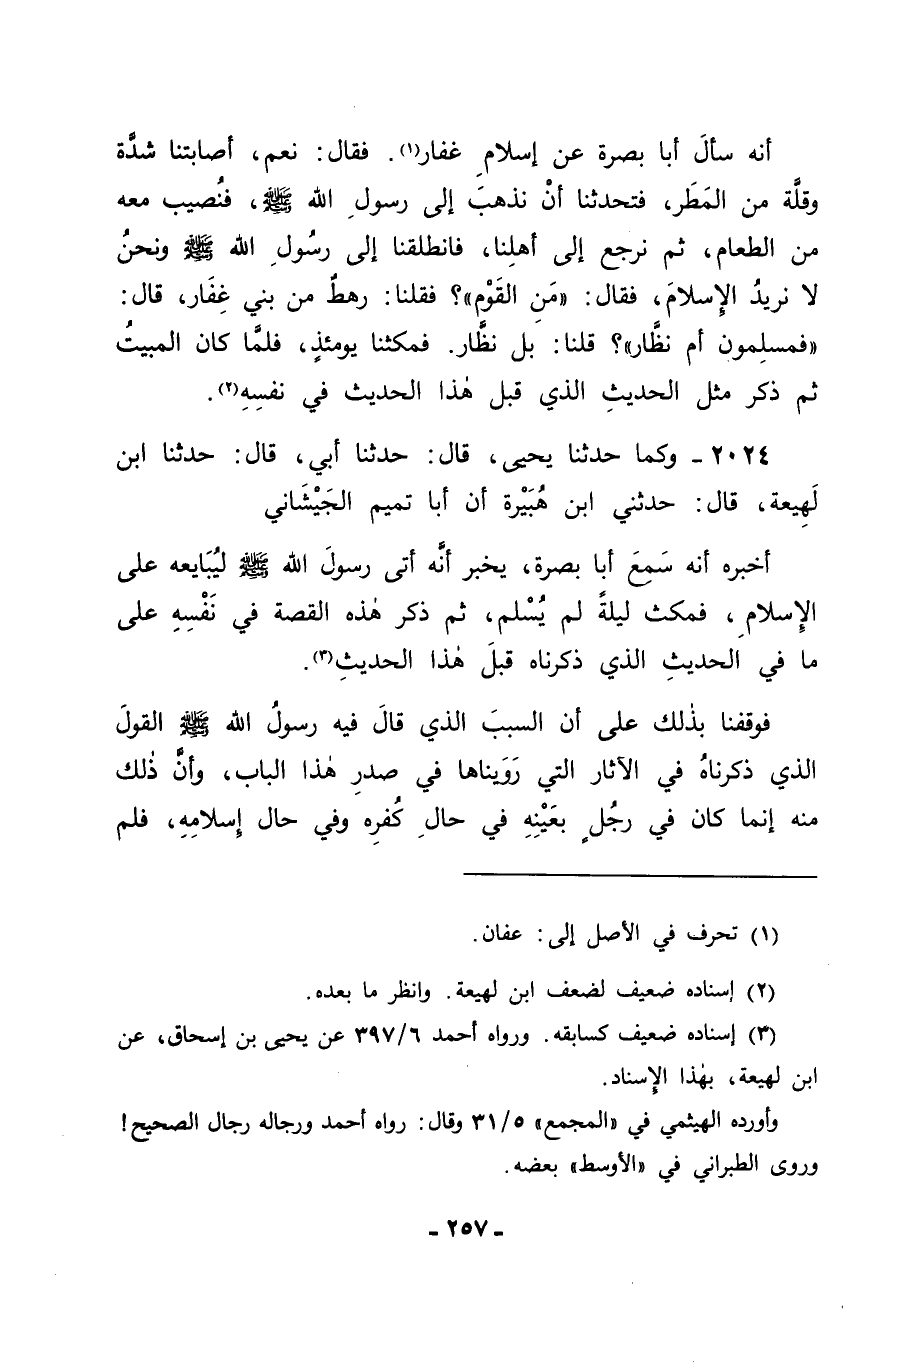 أنه سألَ أبا بصرة عن إسلامِ غفار(١). فقال: نعم، أصابتنا شدَّة
وقلَّة من المَطَر، فتحدثنا أنْ نذهبَ إلى رسولِ الله ﷺ، فنُصيب معه
من الطعام، ثم نرجع إلى أهلِنا، فانطلقنا إلى رسُولِ الله ﷺ ونحنُ
لا نريدُ الإِسلامَ، فقال: «مَنِ القَوْم»؟ فقلنا: رهطٌ من بني غِفَار، قال:
«فمسلِمون أم نظَّار»؟ قلنا: بل نظَّار. فمكثنا يومئذٍ، فلمَّا كان المبيتُ
ثم ذكر مثل الحديثِ الذي قبل هٰذا الحديث في نفسِهِ(٢).
٢٠٢٤ - وكما حدثنا يحيى، قال: حدثنا أبي، قال: حدثنا ابن
لَهِيعة، قال: حدثني ابن هُبَيْرة أن أبا تميم الجَيْشَاني
أخبره أنه سَمِعَ أبا بصرة، يخبر أنَّه أتى رسولَ الله ﷺ ليُبَايعه على
الإِسلامِ، فمكث ليلةً لم يُسْلم، ثم ذكر هٰذه القصة في نَفْسِهِ على
ما في الحديثِ الذي ذكرناه قبلَ هٰذا الحديثِ(٣).
فوقفنا بذٰلك على أن السببَ الذي قالَ فيه رسولُ الله ﷺ القولَ
الذي ذكرناهُ في الآثار التي رَوَيناها في صدرِ هٰذا الباب، وأنَّ ذٰلك
منه إنما كان في رجُلٍ بعَيْنِهِ في حالِ كُفرِه وفي حال إِسلامِهِ، فلم
(١) تحرف في الأصل إلى: عفان.
(٢) إسناده ضعيف لضعف ابن لهيعة. وانظر ما بعده.
(٣) إسناده ضعيف كسابقه. ورواه أحمد ٣٩٧/٦ عن يحيى بن إسحاق، عن
ابن لهيعة، بهٰذا الإِسناد.
وأورده الهيثمي في «المجمع» ٣١/٥ وقال: رواه أحمد ورجاله رجال الصحيح!
وروى الطبراني في «الأوسط» بعضه.
- ٢٥٧ -